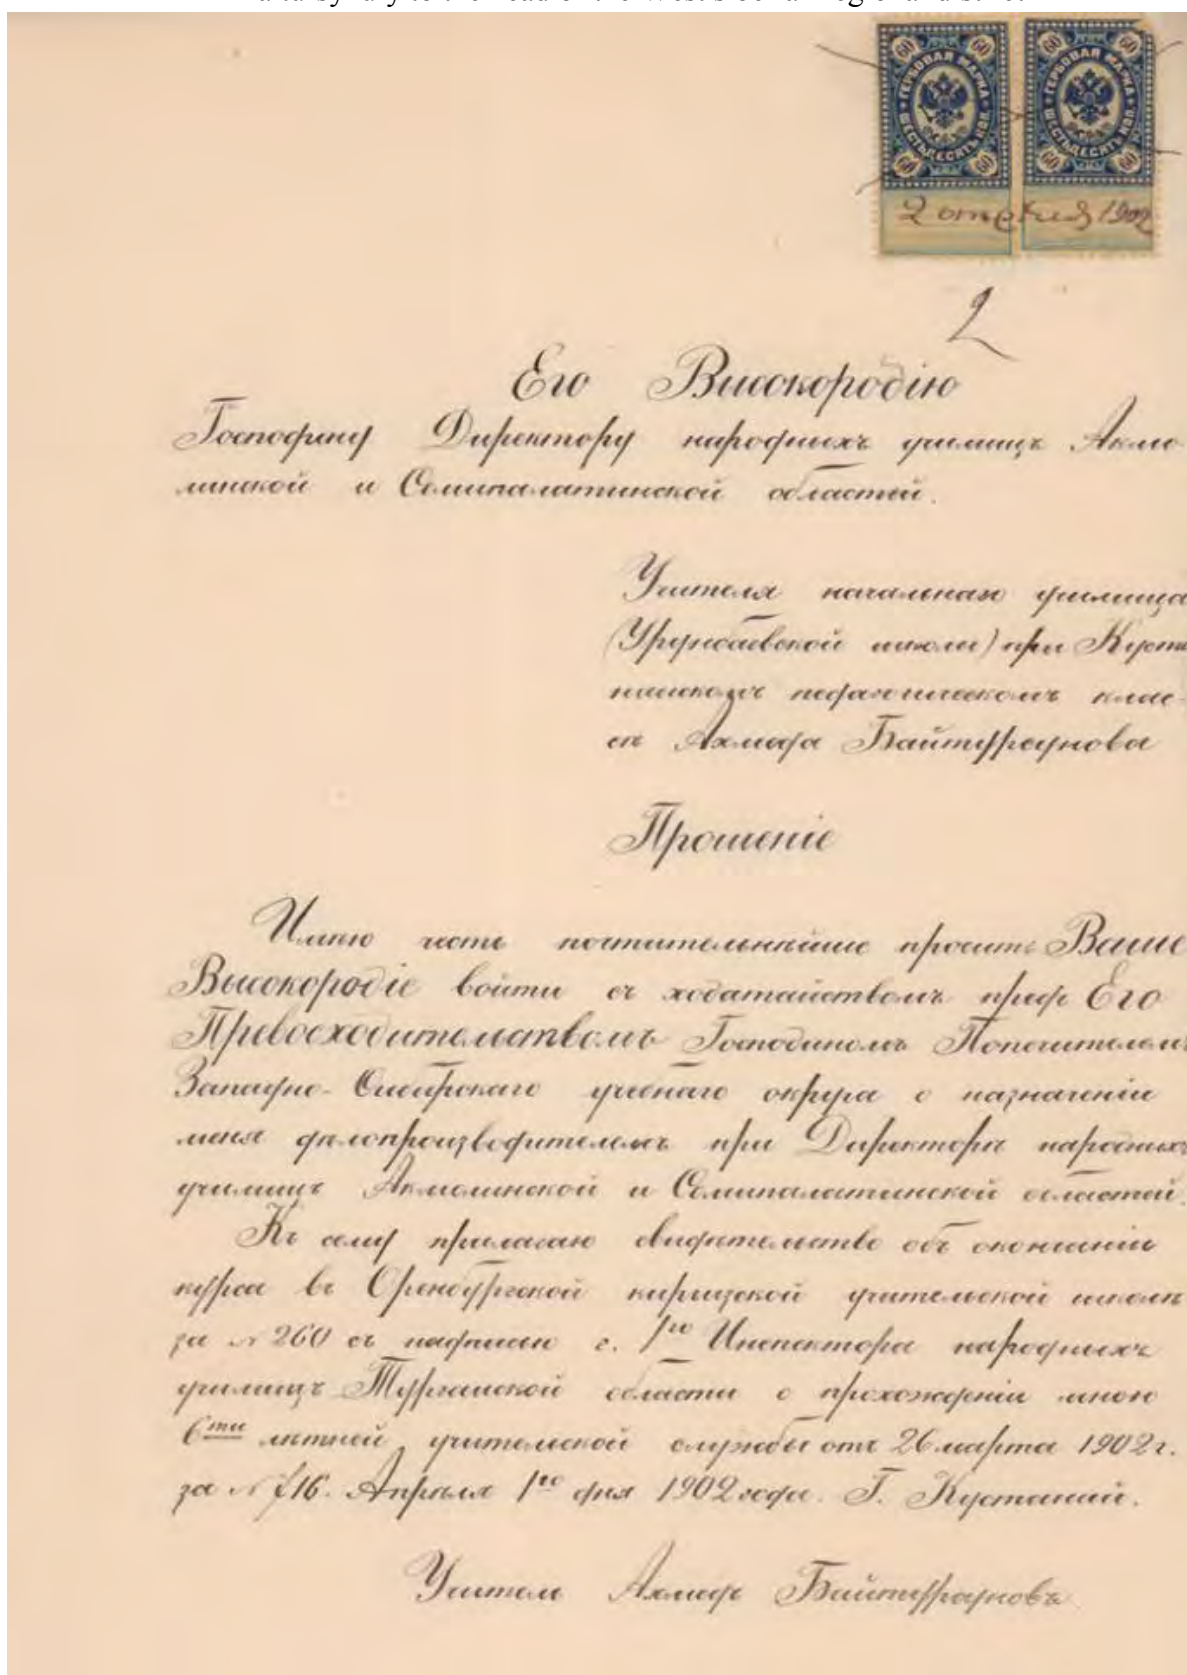 ГЕРБОВАЯ МАРКА ШЕСТЬДЕСЯТЪ КОП. 60 60 60 60
ГЕРБОВАЯ МАРКА ШЕСТЬДЕСЯТЪ КОП. 60 60 60 60
2 1902
2
Его Высокородію
Господину Директору народныхъ училищъ Акмо
линской и Семипалатинской областей.
Учителя начальнаго училища
(Урунбаевской школы) при Куста
найскомъ педагогическомъ клас-
сѣ Ахмада Байтурсунова
Прошеніе
Имѣю честь почтительнѣйше просить Ваше
Высокородіе войти съ ходатайствомъ пред Его
Превосходительствомъ Господиномъ Попечителемъ
Западно-Сибирскаго учебнаго округа о назначеніи
меня дѣлопроизводителемъ при Директорѣ народныхъ
училищъ Акмолинской и Семипалатинской областей.
Къ сему прилагаю свидѣтельство объ окончаніи
курса въ Оренбургской киргизской учительской школѣ
за № 260 съ г. 1го Инспектора народныхъ
училищъ Тургайской области о прохожденіи мною
6ти лѣтней учительской службы отъ 26 марта 1902 г.
за № 716. Апрѣля 1го дня 1902 года. Г. Кустанай.
Учитель Ахмад Байтурсуновъ